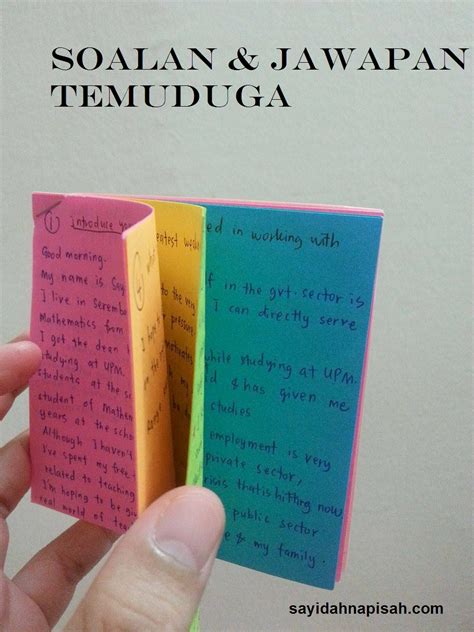 SOALAN & JAWAPAN
TEMUDUGA
① Introduce
Good morning.
My name is Say
I live in Seremb
Mathematics from
I got the dean
studying at UPM.
students at the sc
student of Mathem
years at the scho
Although I haven't
I've spent my free
related to teaching
I'm hoping to be gi
real world of
④
to the my
pressure
motivated
ed in working with
f in the gvt. sector is
I can directly serve
while studying at UPM.
d & has given me
studies
employment is very
private sector,
crisis that is hitting now
public sector
e & my family.
sayidahnapisah.com